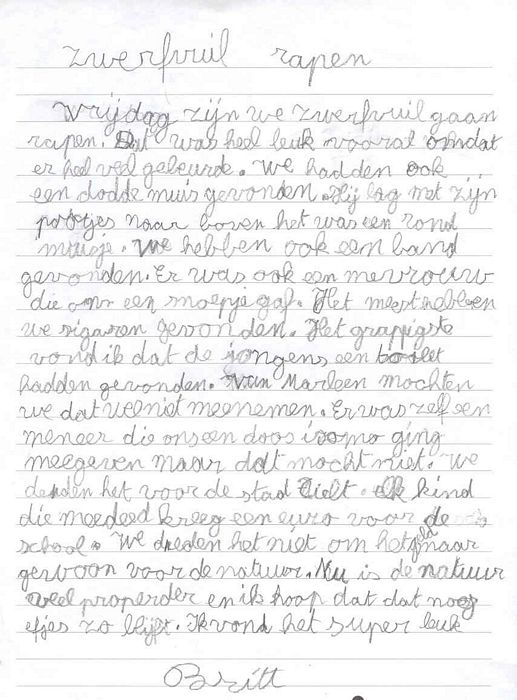 zwerfvuil rapen
Vrijdag zijn we zwerfvuil gaan
rapen. Dat was heel leuk vooral omdat
er heel veel gebeurde. We hadden ook
een dodde muis gevonden. Hij lag met zijn
pootjes naar boven het was een rond
muisje. We hebben ook een band
gevonden. Er was ook een mevrouw
die ons een snoepje gaf. Het meest hebben
we sigaren gevonden. Het grappigste
vond ik dat de jongens een toilet
hadden gevonden. Van Marleen mochten
we dat niet meenemen. Er was zelf een
meneer die ons een doos ging
meegeven maar dat mocht niet. We
deden het voor de stad Tielt. Elk kind
die meedeed kreeg een euro voor de
school. We deden het niet om het geld maar
gewoon voor de natuur. Nu is de natuur
veel properder en ik hoop dat dat nog
efjes zo blijft. Ik vond het super leuk
Britt